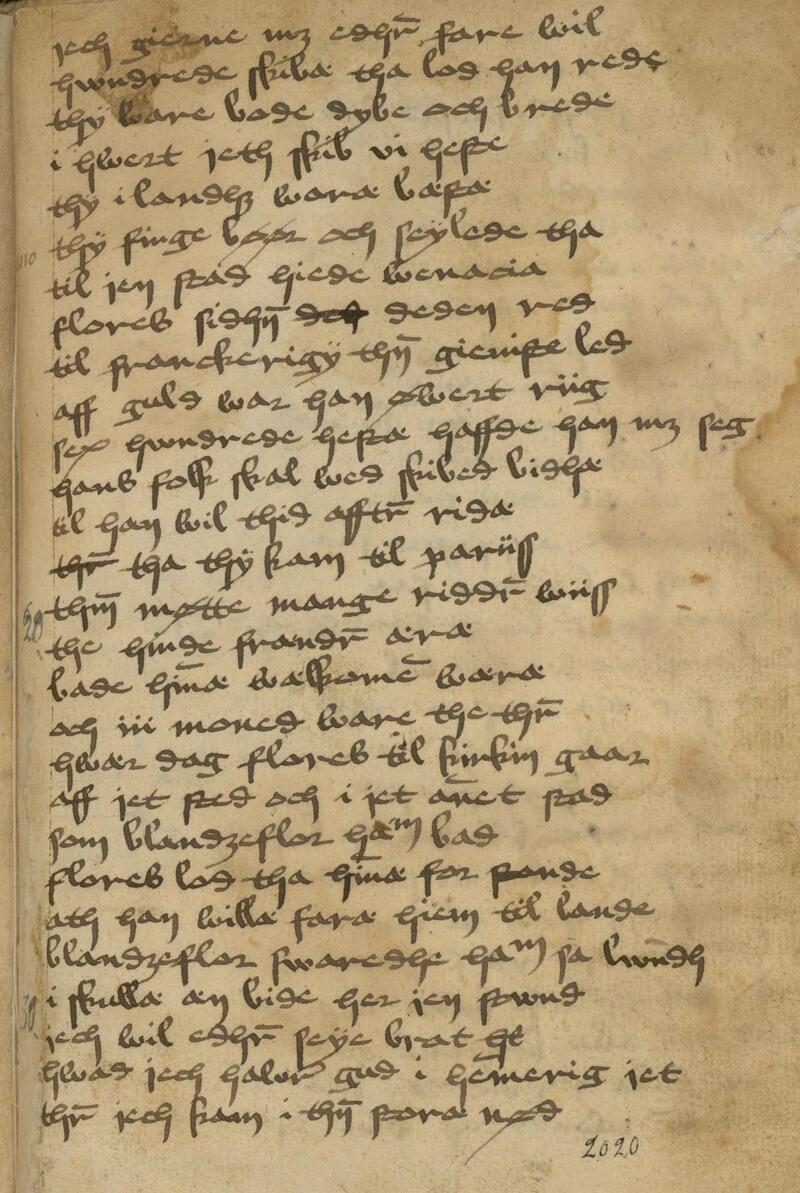 jech gierne mz edhr̄ fare wil
hwndrede skibæ tha lod han rede
thy ware bode dybe och brede
i hwert jeth skib vi heste
thy i landhz waræ bæstæ
110
thy finge bøør och seylede tha
til jen stad hiede wenacia
flores sidhn̄ deden red
til franckerigy thn̄ gieniste led
aff guld war han øwert riig
sex hwndrede hestæ haffde han mz seg
hans folk skal wed skibed bidhæ
til han wil thid afftr̄ ridæ
thr̄ tha thy kam til pariiss
thm̄ møtte mange riddr̄ wiiss
20
the hinde frændr̄ æræ
bade hin̄æ wælkomē wæræ
och iii moned ware the thr̄
hwær dag flores til kirkin gaar
aff jet sted och i jet an̄et stad
som blandzeflor ham bad
flores lod tha hin̄æ for stande
ath han willæ faræ hiem til lande
blandzeflor swaredhe ham sa lwndh
i skullæ æn bide her jen stwnd
30
jech wil edhr̄ seye brat het
hwad jech halwr̄ gud i hēmerig jet
thr̄ jech kam i thn̄ storæ nød
2020